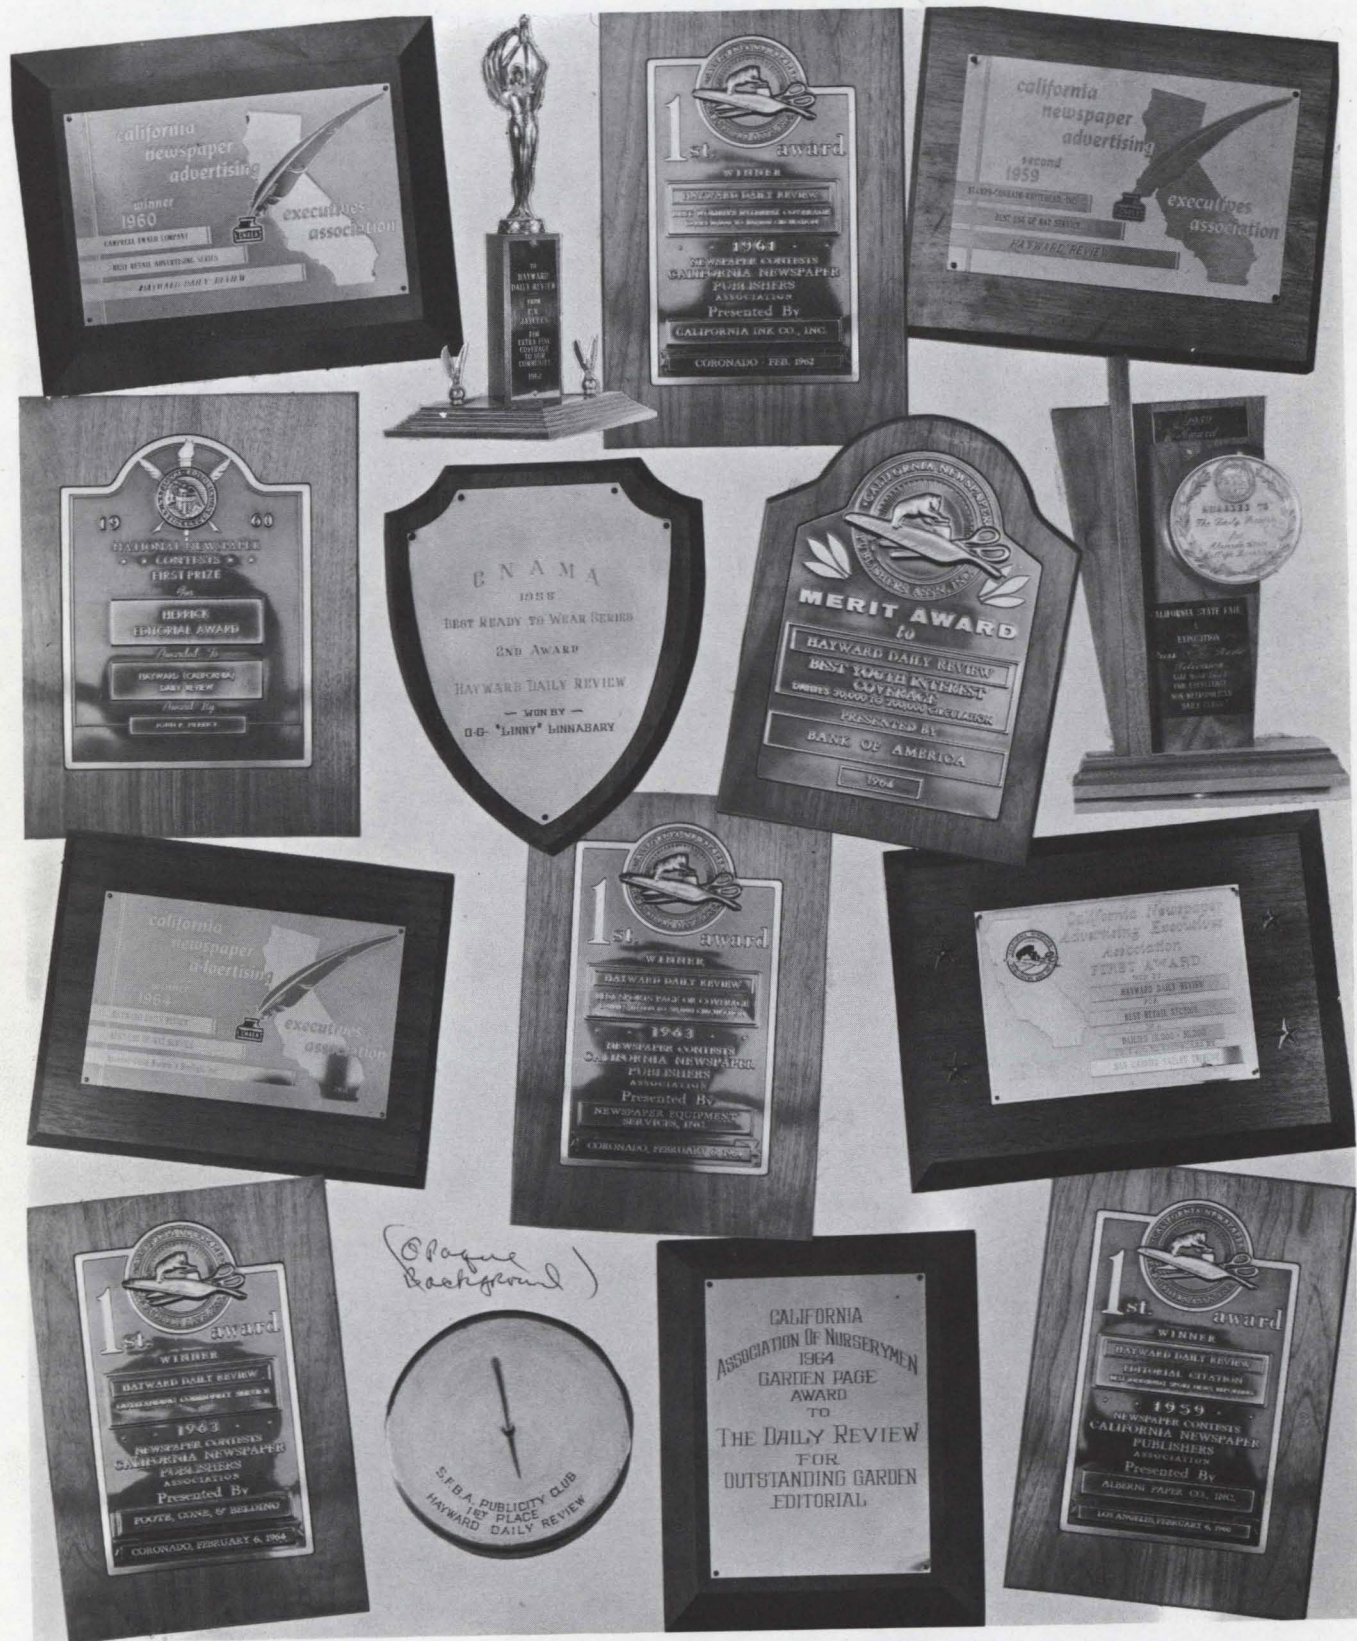 california
newspaper
advertising
winner
1960
executives
association
CNAEA
CAMPBELL EWALD COMPANY
BEST RETAIL ADVERTISING SERIES
HAYWARD DAILY REVIEW
TO
HAYWARD
DAILY REVIEW
FROM
JAYCEES
FOR
EXTRA FINE
COVERAGE
TO OUR
COMMUNITY
1st. award
WINNER
HAYWARD DAILY REVIEW
1961
NEWSPAPER CONTESTS
CALIFORNIA NEWSPAPER
PUBLISHERS
ASSOCIATION
Presented By
CALIFORNIA INK CO., INC.
CORONADO - FEB. 1962
california
newspaper
advertising
second
1959
executives
association
BEST USE OF MAT SERVICE
HAYWARD REVIEW
19 60
NATIONAL NEWSPAPER
CONTESTS
FIRST PRIZE
For
HERRICK
EDITORIAL AWARD
Awarded To
HAYWARD (CALIFORNIA)
DAILY REVIEW
Award By
JOHN P. HERRICK
CNAMA
BEST READY TO WEAR SERIES
2ND AWARD
HAYWARD DAILY REVIEW
— WON BY —
G.G. "LINNY" LINNABARY
CALIFORNIA NEWSPAPER
PUBLISHERS ASS'N, INC.
MERIT AWARD
to
HAYWARD DAILY REVIEW
BEST YOUTH INTEREST
COVERAGE
DAILIES 30,000 TO 100,000 CIRCULATION
PRESENTED BY
BANK OF AMERICA
1964
1959
Award
AWARDED TO
The Daily Review
for
CALIFORNIA STATE FAIR
&
EXPOSITION
Press Radio
Television
GOLD MEDAL AWARD
FOR EXCELLENCE
NON-METROPOLITAN
DAILY CLASS
california
newspaper
advertising
winner
1964
executives
association
CNAEA
HAYWARD DAILY REVIEW
BEST USE OF MAT SERVICE
1st. award
WINNER
HAYWARD DAILY REVIEW
BEST SPORTS PAGE OR COVERAGE
1963
NEWSPAPER CONTESTS
CALIFORNIA NEWSPAPER
PUBLISHERS
ASSOCIATION
Presented By
NEWSPAPER EQUIPMENT
SERVICES, INC.
CORONADO, FEBRUARY 6, 1964
California Newspaper
Advertising Executives
Association
FIRST AWARD
WON BY
HAYWARD DAILY REVIEW
FOR
BEST RETAIL SECTION
SAN GABRIEL VALLEY TRIBUNE
(Opaque
Background)
1st. award
WINNER
HAYWARD DAILY REVIEW
OUTSTANDING COMMUNITY SERVICE
1963
NEWSPAPER CONTESTS
CALIFORNIA NEWSPAPER
PUBLISHERS
ASSOCIATION
Presented By
FOOTE, CONE, & BELDING
CORONADO, FEBRUARY 6, 1964
S.F.B.A. PUBLICITY CLUB
1ST PLACE
HAYWARD DAILY REVIEW
CALIFORNIA
ASSOCIATION OF NURSERYMEN
1964
GARDEN PAGE
AWARD
TO
THE DAILY REVIEW
FOR
OUTSTANDING GARDEN
EDITORIAL
1st. award
WINNER
HAYWARD DAILY REVIEW
EDITORIAL CITATION
BEST INDIVIDUAL SPORT NEWS REPORTING
1959
NEWSPAPER CONTESTS
CALIFORNIA NEWSPAPER
PUBLISHERS
ASSOCIATION
Presented By
ALBERNI PAPER CO., INC.
LOS ANGELES, FEBRUARY 6, 1960